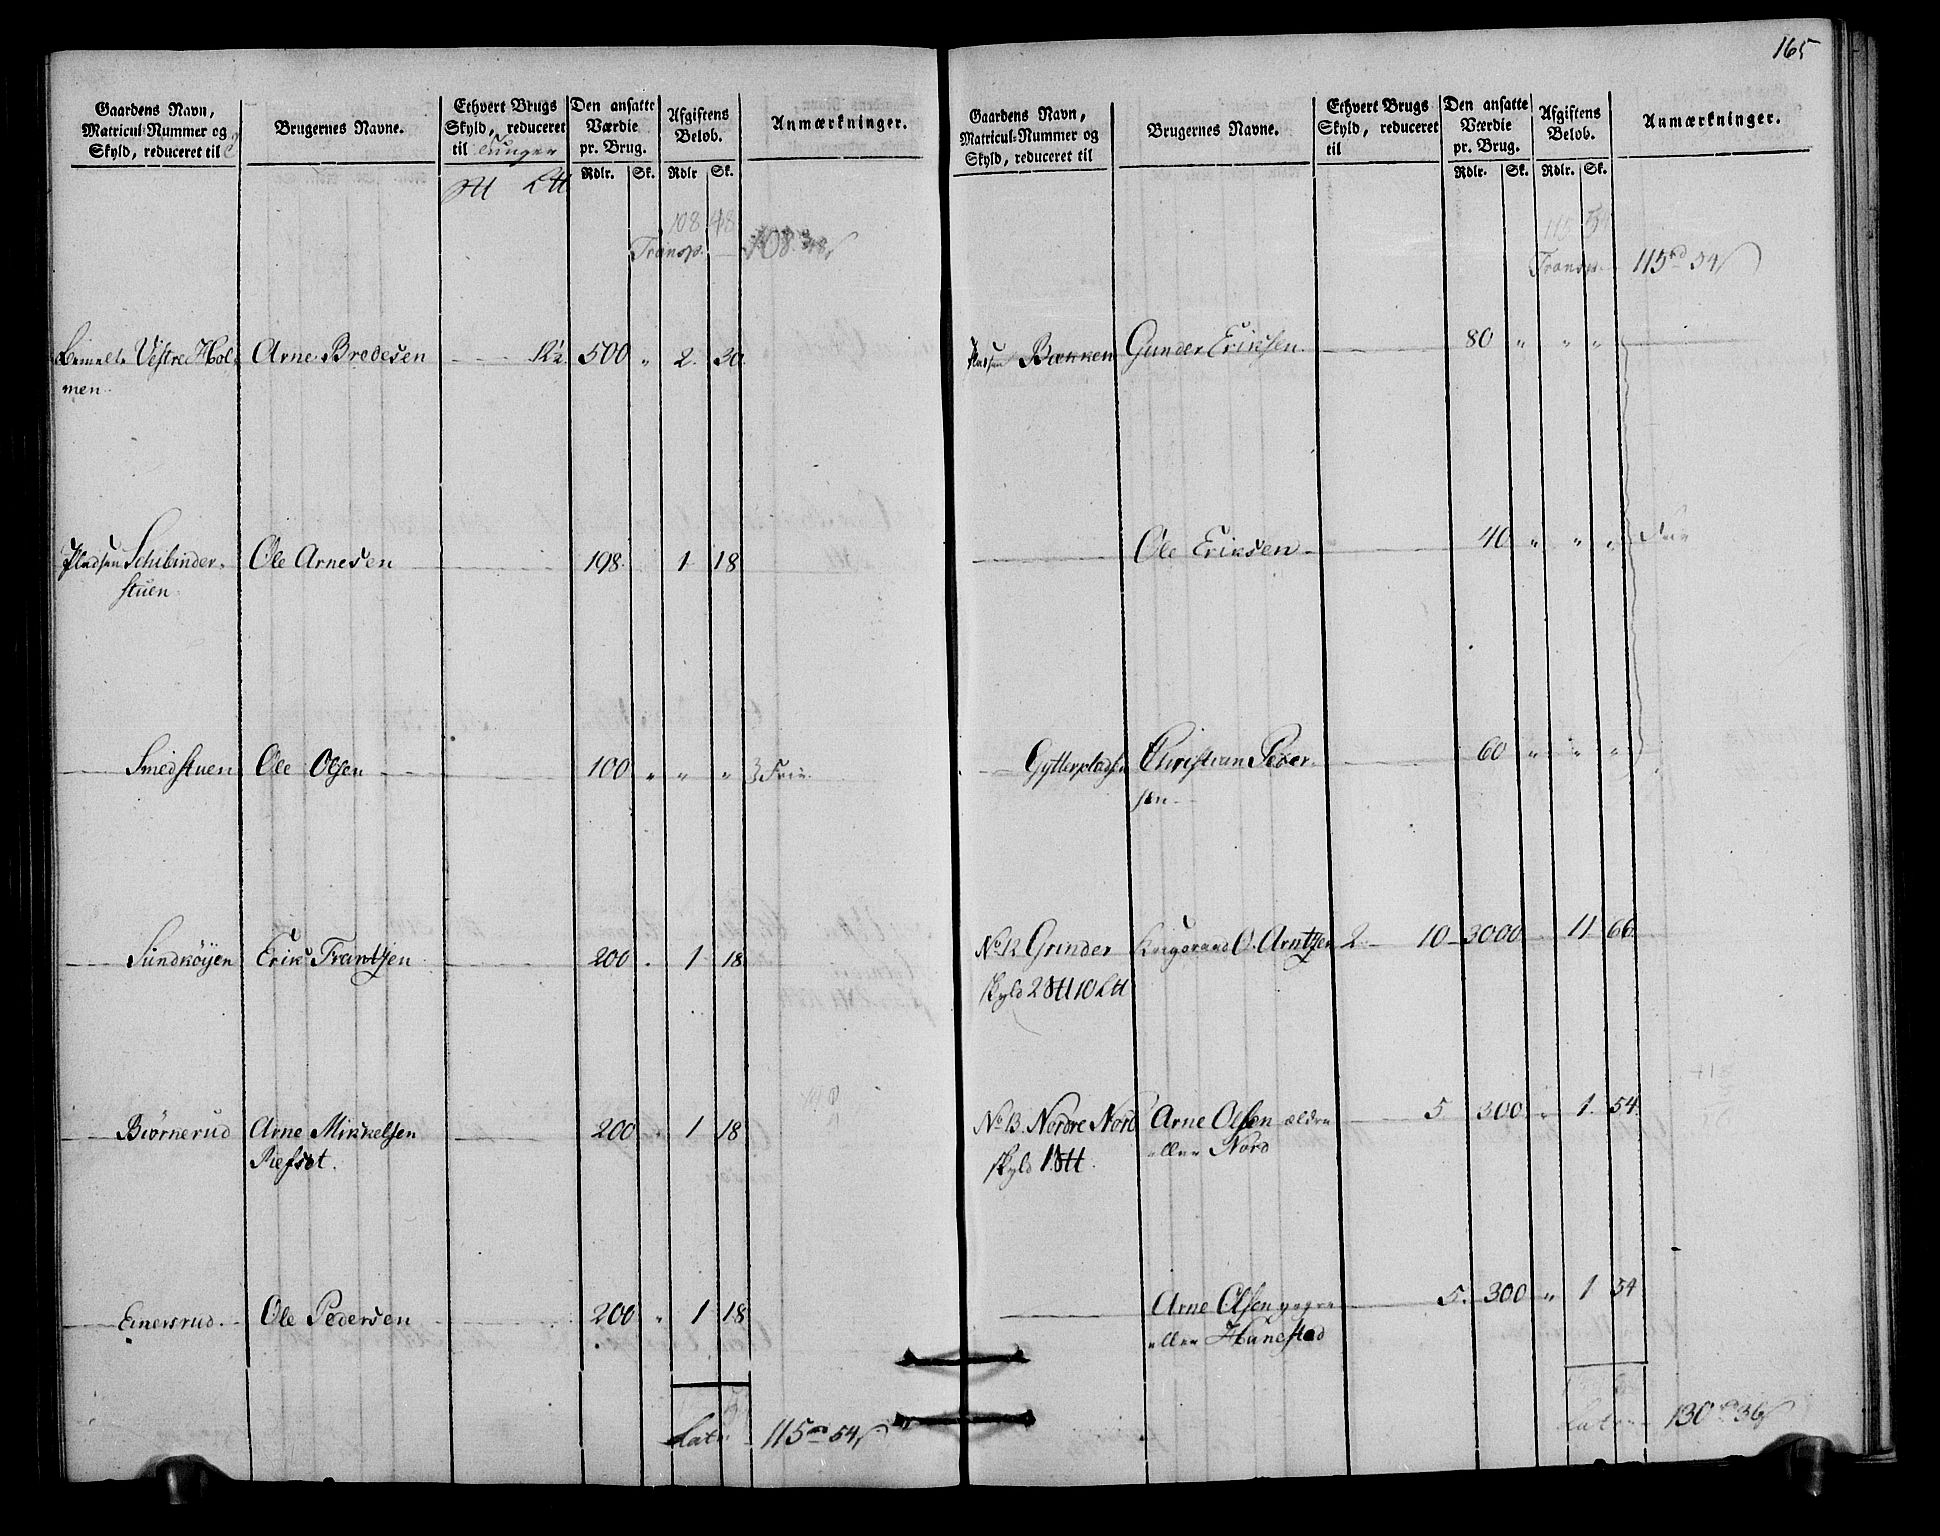 165
Gaardens Navn,
Matricul-Nummer og
Skyld, reduceret til
Brugernes Navne.
Ethvert Brugs
Skyld, reduceret
til Tunger
Den ansatte
Værdie
pr. Brug.
Rdlr. Sk.
Afgiftens
Beløb.
Rdlr Sk.
Anmærkninger.
108 48
Transp. 108 48
Vestre Hol-
men
Arne Bredesen 500 " 2. 30.
Pladsen Schibinder-
stuen
Ole Arnesen 198. 1 18
Smedstuen Ole Olsen 100 " " " Frie.
Sundkøyen Eriks Frantsen 200 1 18
Biørnerud Arne Mikkelsen 200 1 18
Einersrud. Ole Pedersen 200 " 1 18
Latr 115 rd 54
Gaardens Navn,
Matricul-Nummer og
Skyld, reduceret til
Brugernes Navne.
Ethvert Brugs
Skyld, reduceret
til
Den ansatte
Værdie
pr. Brug.
Rdlr. Sk.
Afgiftens
Beløb.
Rdlr. Sk.
Anmærkninger.
115 54
Transp. 115 rd 54
Pladsen Bækken Gunder Eriksen 80 " " "
Ole Eriksen 40 " " " Frie
Gytterpladsen Christian Peder-
sen 60 " " "
No 12 Grinder O. Arntzen 2 10 3000 11 66
Skyld 2 10
No 13 Nordre Nord Arne Olsen ældre 5 300 " 1. 54.
eller Nord
Skyld 1
Arne Olsen yngre 5. 300 " 1 54
eller Hunestad
Latr 130 36